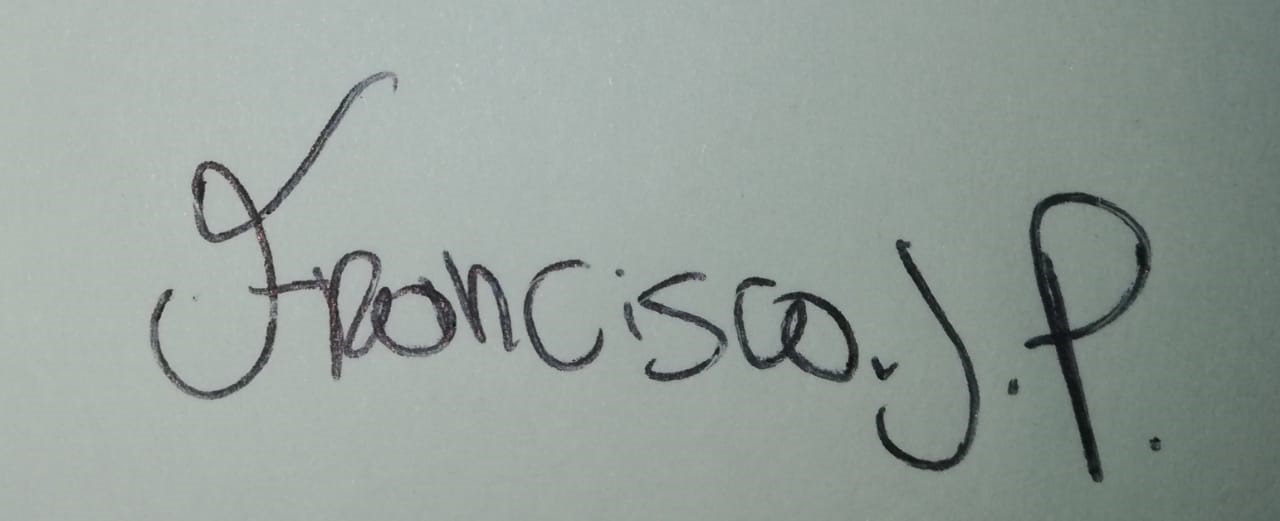 Francisco. J. P.